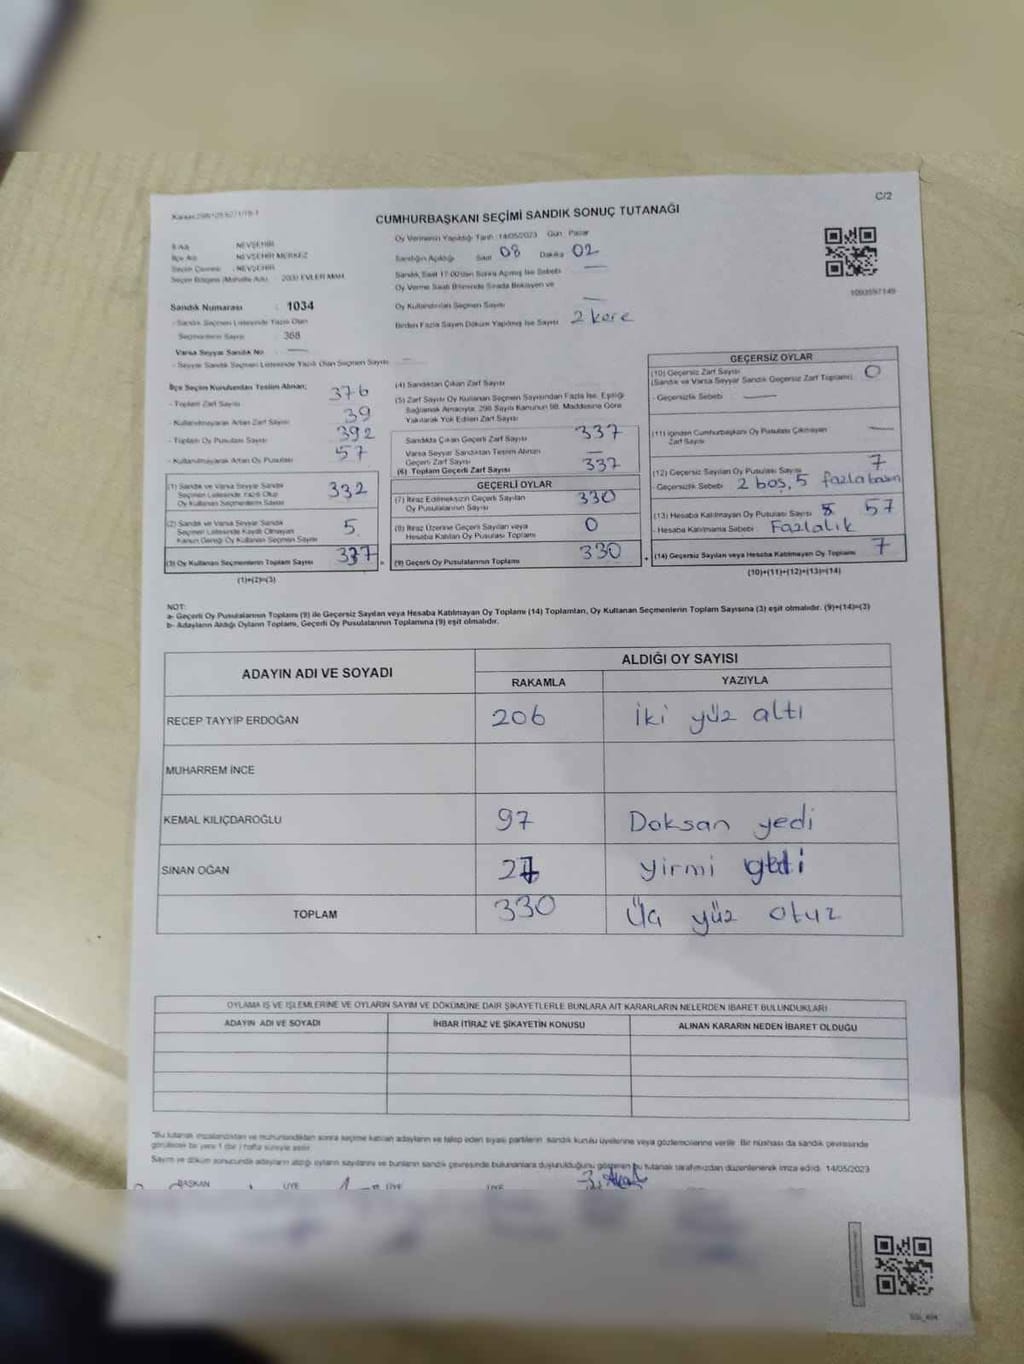 C/2
CUMHURBAŞKANI SEÇİMİ SANDIK SONUÇ TUTANAĞI
İl Adı NEVŞEHİR
İlçe Adı NEVŞEHİR MERKEZ
Seçim Çevresi : NEVŞEHİR
Seçim Bölgesi (Mahalle Adı) 2000 EVLER MAH.
Oy Vermenin Yapıldığı Tarih :14/05/2023 Gün Pazar
Sandığın Açıldığı Saat 08 Dakika 02
Sandık Saat 17:00'dan Sonra Açılmış İse Sebebi
Oy Verme Saati Bitiminde Sırada Bekleyen ve
Oy Kullandırılan Seçmen Sayısı
Birden Fazla Sayım Döküm Yapılmış İse Sayısı 2 kere
1003597149
Sandık Numarası : 1034
- Sandık Seçmen Listesinde Yazılı Olan
Seçmenlerin Sayısı 368
Varsa Seyyar Sandık No
- Seyyar Sandık Seçmen Listesinde Yazılı Olan Seçmen Sayısı
İlçe Seçim Kurulundan Teslim Alınan;
- Toplam Zarf Sayısı 376
- Kullanılmayarak Artan Zarf Sayısı 39
- Toplam Oy Pusulası Sayısı 392
- Kullanılmayarak Artan Oy Pusulası 57
(1) Sandık ve Varsa Seyyar Sandık
Seçmen Listesinde Yazılı Olup
Oy Kullanan Seçmenlerin Sayısı 332
(2) Sandık ve Varsa Seyyar Sandık
Seçmen Listesinde Kayıtlı Olmayan
Kanun Gereği Oy Kullanan Seçmen Sayısı 5
(3) Oy Kullanan Seçmenlerin Toplam Sayısı 337
(1)+(2)=(3)
(4) Sandıktan Çıkan Zarf Sayısı
(5) Zarf Sayısı Oy Kullanan Seçmen Sayısından Fazla İse, Eşitliği
Sağlamak Amacıyla, 298 Sayılı Kanunun 98. Maddesine Göre
Yakılarak Yok Edilen Zarf Sayısı
Sandıkta Çıkan Geçerli Zarf Sayısı 337
Varsa Seyyar Sandıktan Teslim Alınan
Geçerli Zarf Sayısı
(6) Toplam Geçerli Zarf Sayısı 337
GEÇERLİ OYLAR
(7) İtiraz Edilmeksizin Geçerli Sayılan
Oy Pusulalarının Sayısı 330
(8) İtiraz Üzerine Geçerli Sayılan veya
Hesaba Katılan Oy Pusulası Toplamı 0
(9) Geçerli Oy Pusulalarının Toplamı 330
GEÇERSİZ OYLAR
(10) Geçersiz Zarf Sayısı
(Sandık ve Varsa Seyyar Sandık Geçersiz Zarf Toplamı) 0
- Geçersizlik Sebebi
(11) İçinden Cumhurbaşkanı Oy Pusulası Çıkmayan
Zarf Sayısı
(12) Geçersiz Sayılan Oy Pusulası Sayısı 7
- Geçersizlik Sebebi 2 boş, 5 fazla basım
(13) Hesaba Katılmayan Oy Pusulası Sayısı 57
- Hesaba Katılmama Sebebi Fazlalık
(14) Geçersiz Sayılan veya Hesaba Katılmayan Oy Toplamı 7
(10)+(11)+(12)+(13)=(14)
NOT:
a- Geçerli Oy Pusulalarının Toplamı (9) ile Geçersiz Sayılan veya Hesaba Katılmayan Oy Toplamı (14) Toplamları, Oy Kullanan Seçmenlerin Toplam Sayısına (3) eşit olmalıdır. (9)+(14)=(3)
b- Adayların Aldığı Oyların Toplamı, Geçerli Oy Pusulalarının Toplamına (9) eşit olmalıdır.
ADAYIN ADI VE SOYADI
ALDIĞI OY SAYISI
RAKAMLA YAZIYLA
RECEP TAYYİP ERDOĞAN 206 İki yüz altı
MUHARREM İNCE
KEMAL KILIÇDAROĞLU 97 Doksan yedi
SİNAN OĞAN 27 Yirmi yedi
TOPLAM 330 Üç yüz otuz
OYLAMA İŞ VE İŞLEMLERİNE VE OYLARIN SAYIM VE DÖKÜMÜNE DAİR ŞİKAYETLERLE BUNLARA AİT KARARLARIN NELERDEN İBARET BULUNDUKLARI
ADAYIN ADI VE SOYADI İHBAR İTİRAZ VE ŞİKAYETİN KONUSU ALINAN KARARIN NEDEN İBARET OLDUĞU
*Bu tutanak imzalandıktan ve mühürlendikten sonra seçime katılan adayların ve talep eden siyasi partilerin sandık kurulu üyelerine veya gözlemcilerine verilir. Bir nüshası da sandık çevresinde
görülecek bir yere 1 (bir) hafta süreyle asılır.
Sayım ve döküm sonucunda adayların aldığı oyların sayılarını ve bunların sandık çevresinde bulunanlara duyurulduğunu gösteren bu tutanak tarafımızdan düzenlenerek imza edildi. 14/05/2023
BAŞKAN ÜYE ÜYE ÜYE